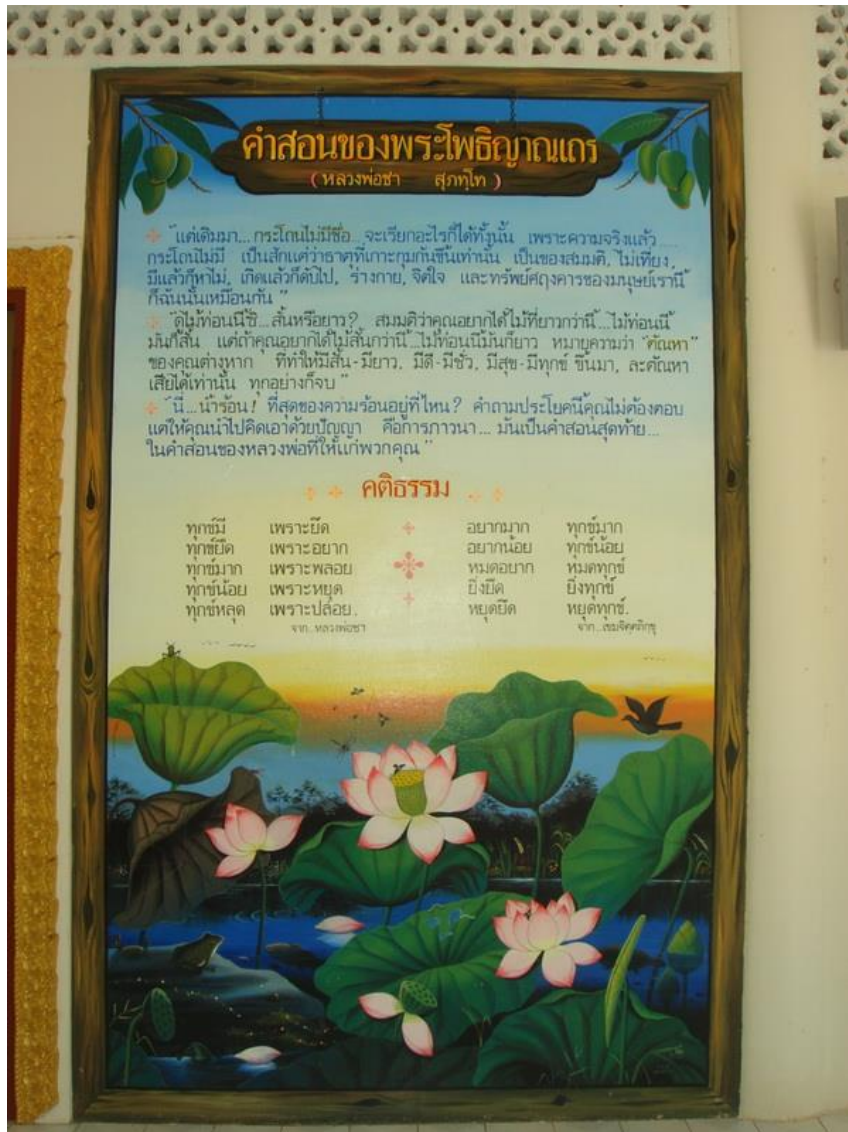 คำสอนของพระโพธิญาณเถร
(หลวงพ่อชา สุภทฺโท)
"แต่เดิมมา...กระโถนไม่มีชื่อ...จะเรียกอะไรก็ได้ทั้งนั้น เพราะความจริงแล้ว
กระโถนไม่มี เป็นสักแต่ว่าธาตุที่เกาะกุมกันขึ้นเท่านั้น เป็นของสมมติ, ไม่เที่ยง,
มีแล้วก็หาไม่, เกิดแล้วก็ดับไป, ร่างกาย, จิตใจ และทรัพย์ศฤงคารของมนุษย์เรานี้
ก็ฉันนั้นเหมือนกัน"
"ดูไม้ท่อนนี้ซิ...สั้นหรือยาว? สมมติว่าคุณอยากได้ไม้ที่ยาวกว่านี้...ไม้ท่อนนี้
มันก็สั้น แต่ถ้าคุณอยากได้ไม้สั้นกว่านี้...ไม้ท่อนนี้มันก็ยาว หมายความว่า "ตัณหา"
ของคุณต่างหาก ที่ทำให้มีสั้น-มียาว, มีดี-มีชั่ว, มีสุข-มีทุกข์ ขึ้นมา, ละตัณหา
เสียได้เท่านั้น ทุกอย่างก็จบ"
"นี่...น้ำร้อน! ที่สุดของความร้อนอยู่ที่ไหน? คำถามประโยคนี้คุณไม่ต้องตอบ
แต่ให้คุณนำไปคิดเอาด้วยปัญญา คือการภาวนา...มันเป็นคำสอนสุดท้าย...
ในคำสอนของหลวงพ่อที่ให้แก่พวกคุณ"
คติธรรม
ทุกข์มี เพราะยึด
ทุกข์ยืด เพราะอยาก
ทุกข์มาก เพราะพลอย
ทุกข์น้อย เพราะหยุด
ทุกข์หลุด เพราะปล่อย.
จาก...หลวงพ่อชา
อยากมาก ทุกข์มาก
อยากน้อย ทุกข์น้อย
หมดอยาก หมดทุกข์
ยิ่งยึด ยิ่งทุกข์
หยุดยึด หยุดทุกข์.
จาก...เขมจิตฺตภิกฺขุ